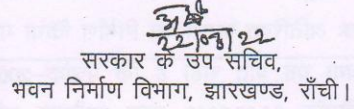 22/03/22
सरकार के उप सचिव,
भवन निर्माण विभाग, झारखण्ड, राँची।